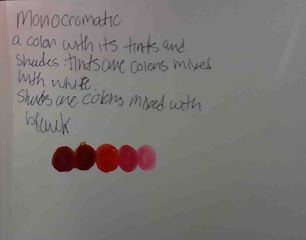 Monocromatic
a color with its tints and
shades tints are colors mixed
with white.
Shades are colors mixed with
black